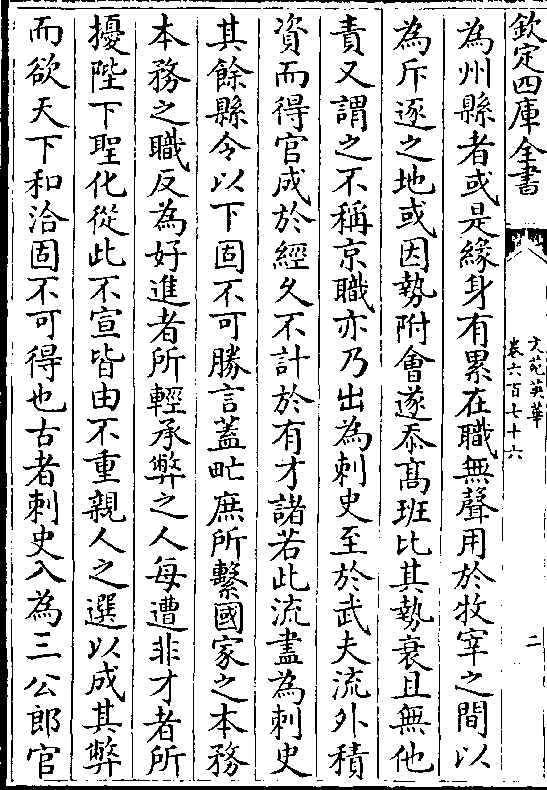 欽定四庫全書
文苑英華
卷六百七十六
二
為州縣者或是緣身有累在職無聲用於牧宰之間以
為斥逐之地或因勢附會遂忝髙班比其勢衰且無他
責又謂之不稱京職亦乃出為刺史至於武夫流外積
資而得官成於經久不計於有才諸若此流盡為刺史
其餘縣令以下固不可勝言蓋甿庶所繫國家之本務
本務之職反為好進者所輕承弊之人每遭非才者所
擾陛下聖化從此不宣皆由不重親人之選以成其弊
而欲天下和洽固不可得也古者刺史入為三公郎官